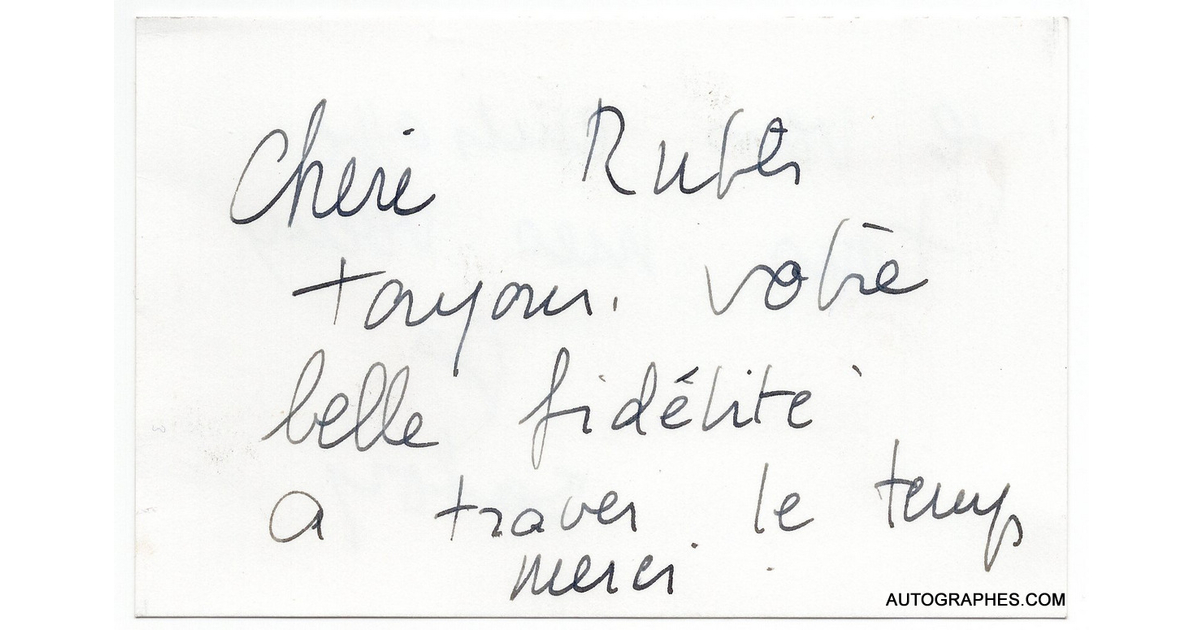 Chere Rubes
toujours votre
belle fidélité
a traver le temps
merci
AUTOGRAPHES.COM